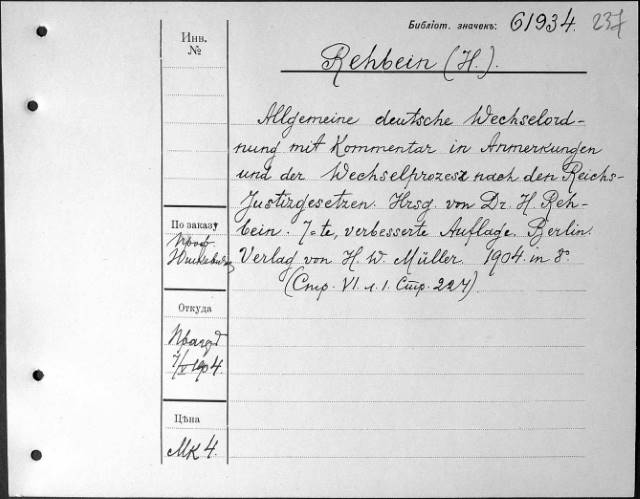 Библіот. значекъ: 61934. 237
Инв.
№
Rehbein (H.).
Allgemeine deutsche Wechselord-
nung mit Kommentar in Anmerkungen
und der Wechselprozess nach den Reichs-
Justizgesetzen. Hrsg. von Dr. H. Reh-
bein. 7=te, verbesserte Auflage. Berlin.
Verlag von H. W. Müller. 1904. in 8°.
(Стр. VI л. 1. Стр. 227)
По заказу
Проф.
Откуда
1904.
Цѣна
Mk 4.